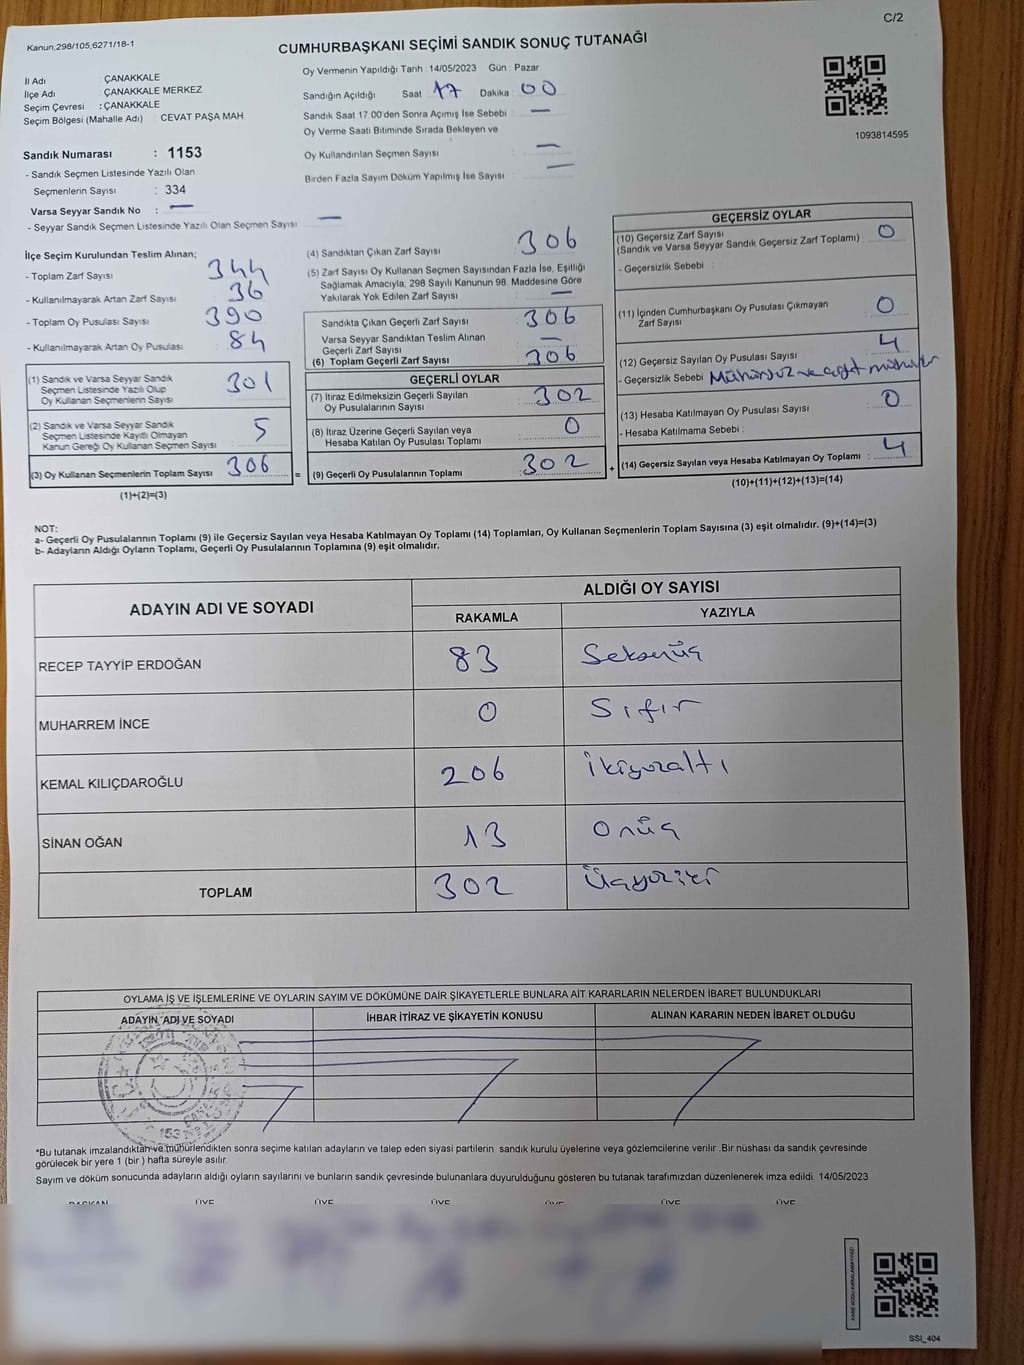 C/2
Kanun,298/105,6271/18-1
CUMHURBAŞKANI SEÇİMİ SANDIK SONUÇ TUTANAĞI
İl Adı ÇANAKKALE
İlçe Adı : ÇANAKKALE MERKEZ
Seçim Çevresi : ÇANAKKALE
Seçim Bölgesi (Mahalle Adı) CEVAT PAŞA MAH
Sandık Numarası : 1153
- Sandık Seçmen Listesinde Yazılı Olan
Seçmenlerin Sayısı : 334
Varsa Seyyar Sandık No : —
- Seyyar Sandık Seçmen Listesinde Yazılı Olan Seçmen Sayısı —
Oy Vermenin Yapıldığı Tarih :14/05/2023 Gün : Pazar
Sandığın Açıldığı Saat 17 Dakika 00
Sandık Saat 17.00'den Sonra Açımış İse Sebebi : —
Oy Verme Saati Bitiminde Sırada Bekleyen ve
Oy Kullandırılan Seçmen Sayısı : —
Birden Fazla Sayım Döküm Yapılmış İse Sayısı : —
1093814595
İlçe Seçim Kurulundan Teslim Alınan;
- Toplam Zarf Sayısı 344
- Kullanılmayarak Artan Zarf Sayısı 36
- Toplam Oy Pusulası Sayısı 390
- Kullanılmayarak Artan Oy Pusulası 84
(1) Sandık ve Varsa Seyyar Sandık
Seçmen Listesinde Yazılı Olup
Oy Kullanan Seçmenlerin Sayısı 301
(2) Sandık ve Varsa Seyyar Sandık
Seçmen Listesinde Kayıtlı Olmayan
Kanun Gereği Oy Kullanan Seçmen Sayısı 5
(3) Oy Kullanan Seçmenlerin Toplam Sayısı 306
(1)+(2)=(3)
(4) Sandıktan Çıkan Zarf Sayısı 306
(5) Zarf Sayısı Oy Kullanan Seçmen Sayısından Fazla İse, Eşitliği
Sağlamak Amacıyla, 298 Sayılı Kanunun 98. Maddesine Göre
Yakılarak Yok Edilen Zarf Sayısı —
Sandıkta Çıkan Geçerli Zarf Sayısı : 306
Varsa Seyyar Sandıktan Teslim Alınan
Geçerli Zarf Sayısı : —
(6) Toplam Geçerli Zarf Sayısı : 306
GEÇERLİ OYLAR
(7) İtiraz Edilmeksizin Geçerli Sayılan
Oy Pusulalarının Sayısı : 302
(8) İtiraz Üzerine Geçerli Sayılan veya
Hesaba Katılan Oy Pusulası Toplamı : 0
= (9) Geçerli Oy Pusulalarının Toplamı : 302
GEÇERSİZ OYLAR
(10) Geçersiz Zarf Sayısı
(Sandık ve Varsa Seyyar Sandık Geçersiz Zarf Toplamı) : 0
- Geçersizlik Sebebi :
(11) İçinden Cumhurbaşkanı Oy Pusulası Çıkmayan
Zarf Sayısı : 0
(12) Geçersiz Sayılan Oy Pusulası Sayısı : 4
- Geçersizlik Sebebi : Mühürsüz ve
(13) Hesaba Katılmayan Oy Pusulası Sayısı : 0
- Hesaba Katılmama Sebebi :
+ (14) Geçersiz Sayılan veya Hesaba Katılmayan Oy Toplamı : 4
(10)+(11)+(12)+(13)=(14)
NOT:
a- Geçerli Oy Pusulalarının Toplamı (9) ile Geçersiz Sayılan veya Hesaba Katılmayan Oy Toplamı (14) Toplamları, Oy Kullanan Seçmenlerin Toplam Sayısına (3) eşit olmalıdır. (9)+(14)=(3)
b- Adayların Aldığı Oyların Toplamı, Geçerli Oy Pusulalarının Toplamına (9) eşit olmalıdır.
ADAYIN ADI VE SOYADI ALDIĞI OY SAYISI
RAKAMLA YAZIYLA
RECEP TAYYİP ERDOĞAN 83 Seksenüç
MUHARREM İNCE 0 Sıfır
KEMAL KILIÇDAROĞLU 206 İkiyüzaltı
SİNAN OĞAN 13 Onüç
TOPLAM 302 Üçyüziki
OYLAMA İŞ VE İŞLEMLERİNE VE OYLARIN SAYIM VE DÖKÜMÜNE DAİR ŞİKAYETLERLE BUNLARA AİT KARARLARIN NELERDEN İBARET BULUNDUKLARI
ADAYIN ADI VE SOYADI İHBAR İTİRAZ VE ŞİKAYETİN KONUSU ALINAN KARARIN NEDEN İBARET OLDUĞU
*Bu tutanak imzalandıktan ve mühürlendikten sonra seçime katılan adayların ve talep eden siyasi partilerin sandık kurulu üyelerine veya gözlemcilerine verilir .Bir nüshası da sandık çevresinde
görülecek bir yere 1 (bir ) hafta süreyle asılır.
Sayım ve döküm sonucunda adayların aldığı oyların sayılarını ve bunların sandık çevresinde bulunanlara duyurulduğunu gösteren bu tutanak tarafımızdan düzenlenerek imza edildi. 14/05/2023
BAŞKAN ÜYE ÜYE ÜYE ÜYE ÜYE ÜYE
SSI_404